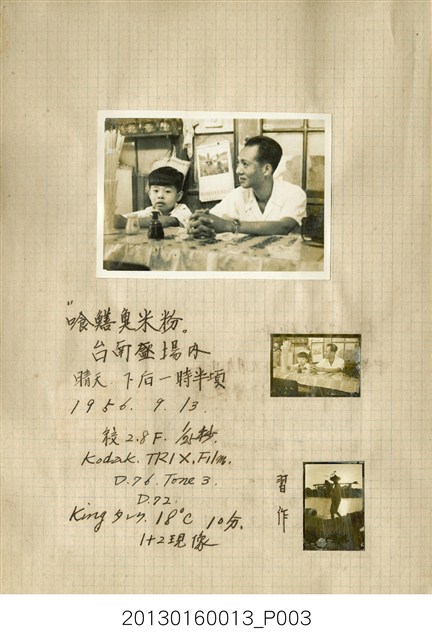 "喰鱔魚米粉。
台南盛場内
晴天 下后一時半頃
1956. 9. 13.
絞 2.8 F.
Kodak. TRIX. Film.
D.76. Tone 3.
D.72.
King タンク. 18°C 10分.
1+2 現像
習作
20130160013_P003